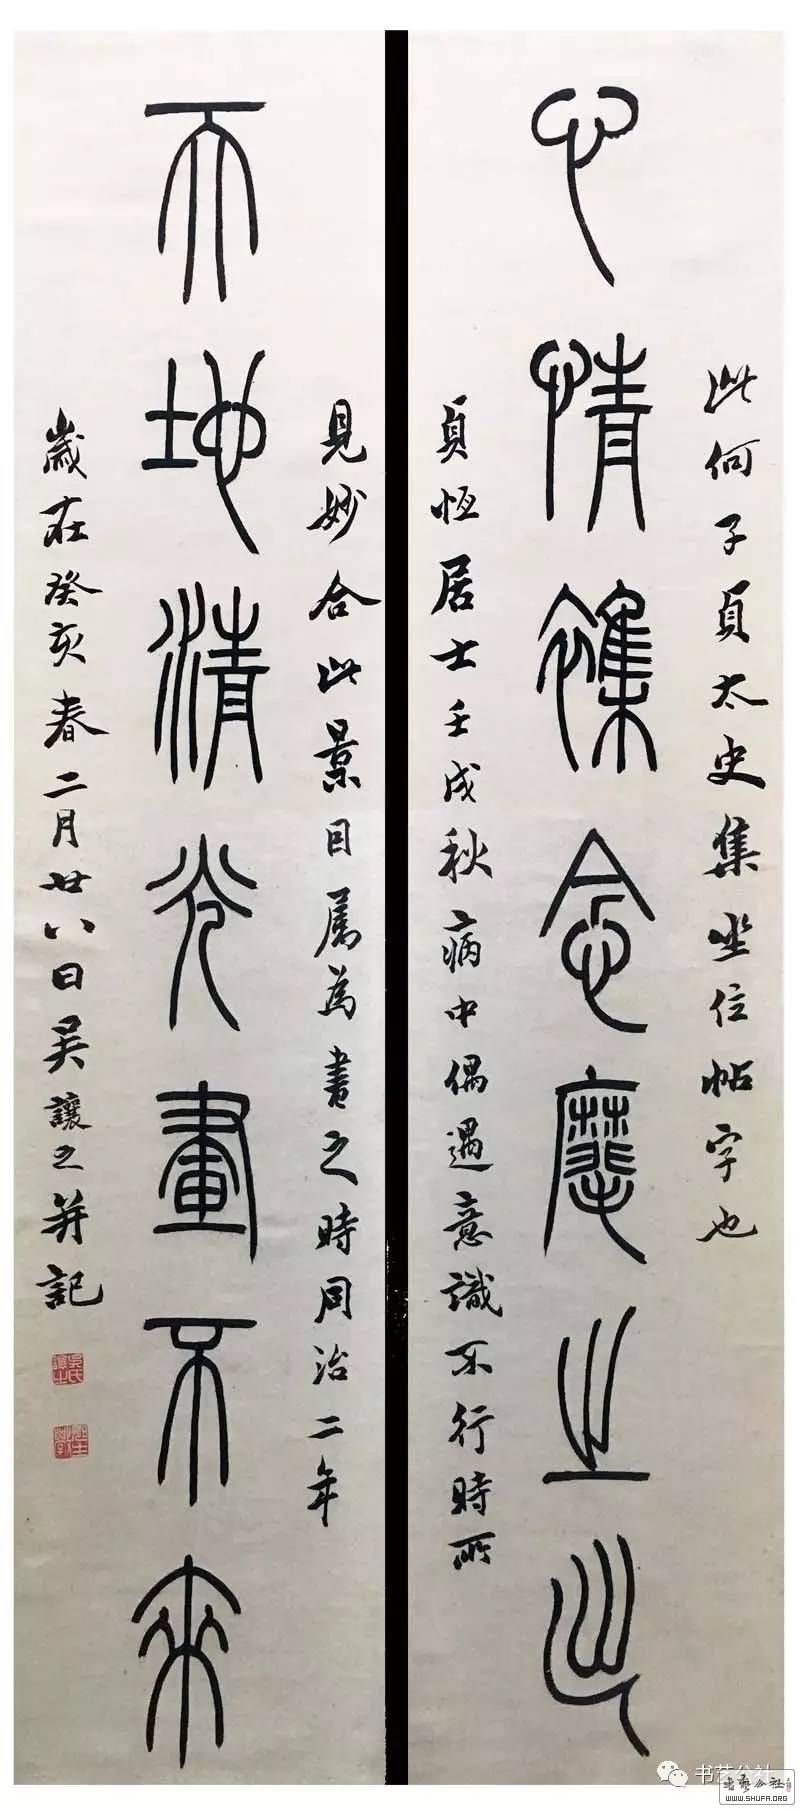 此何子貞太史集坐位帖字也
心情雜念麾之出
貞恆居士壬戌秋病中偶遇意識不行時所
見妙合此景因屬為書之時同治二年
天地清光畫不來
歲在癸亥春二月廿八日吳讓之并記
书艺公社
书艺公社
WWW.SHUFA.ORG